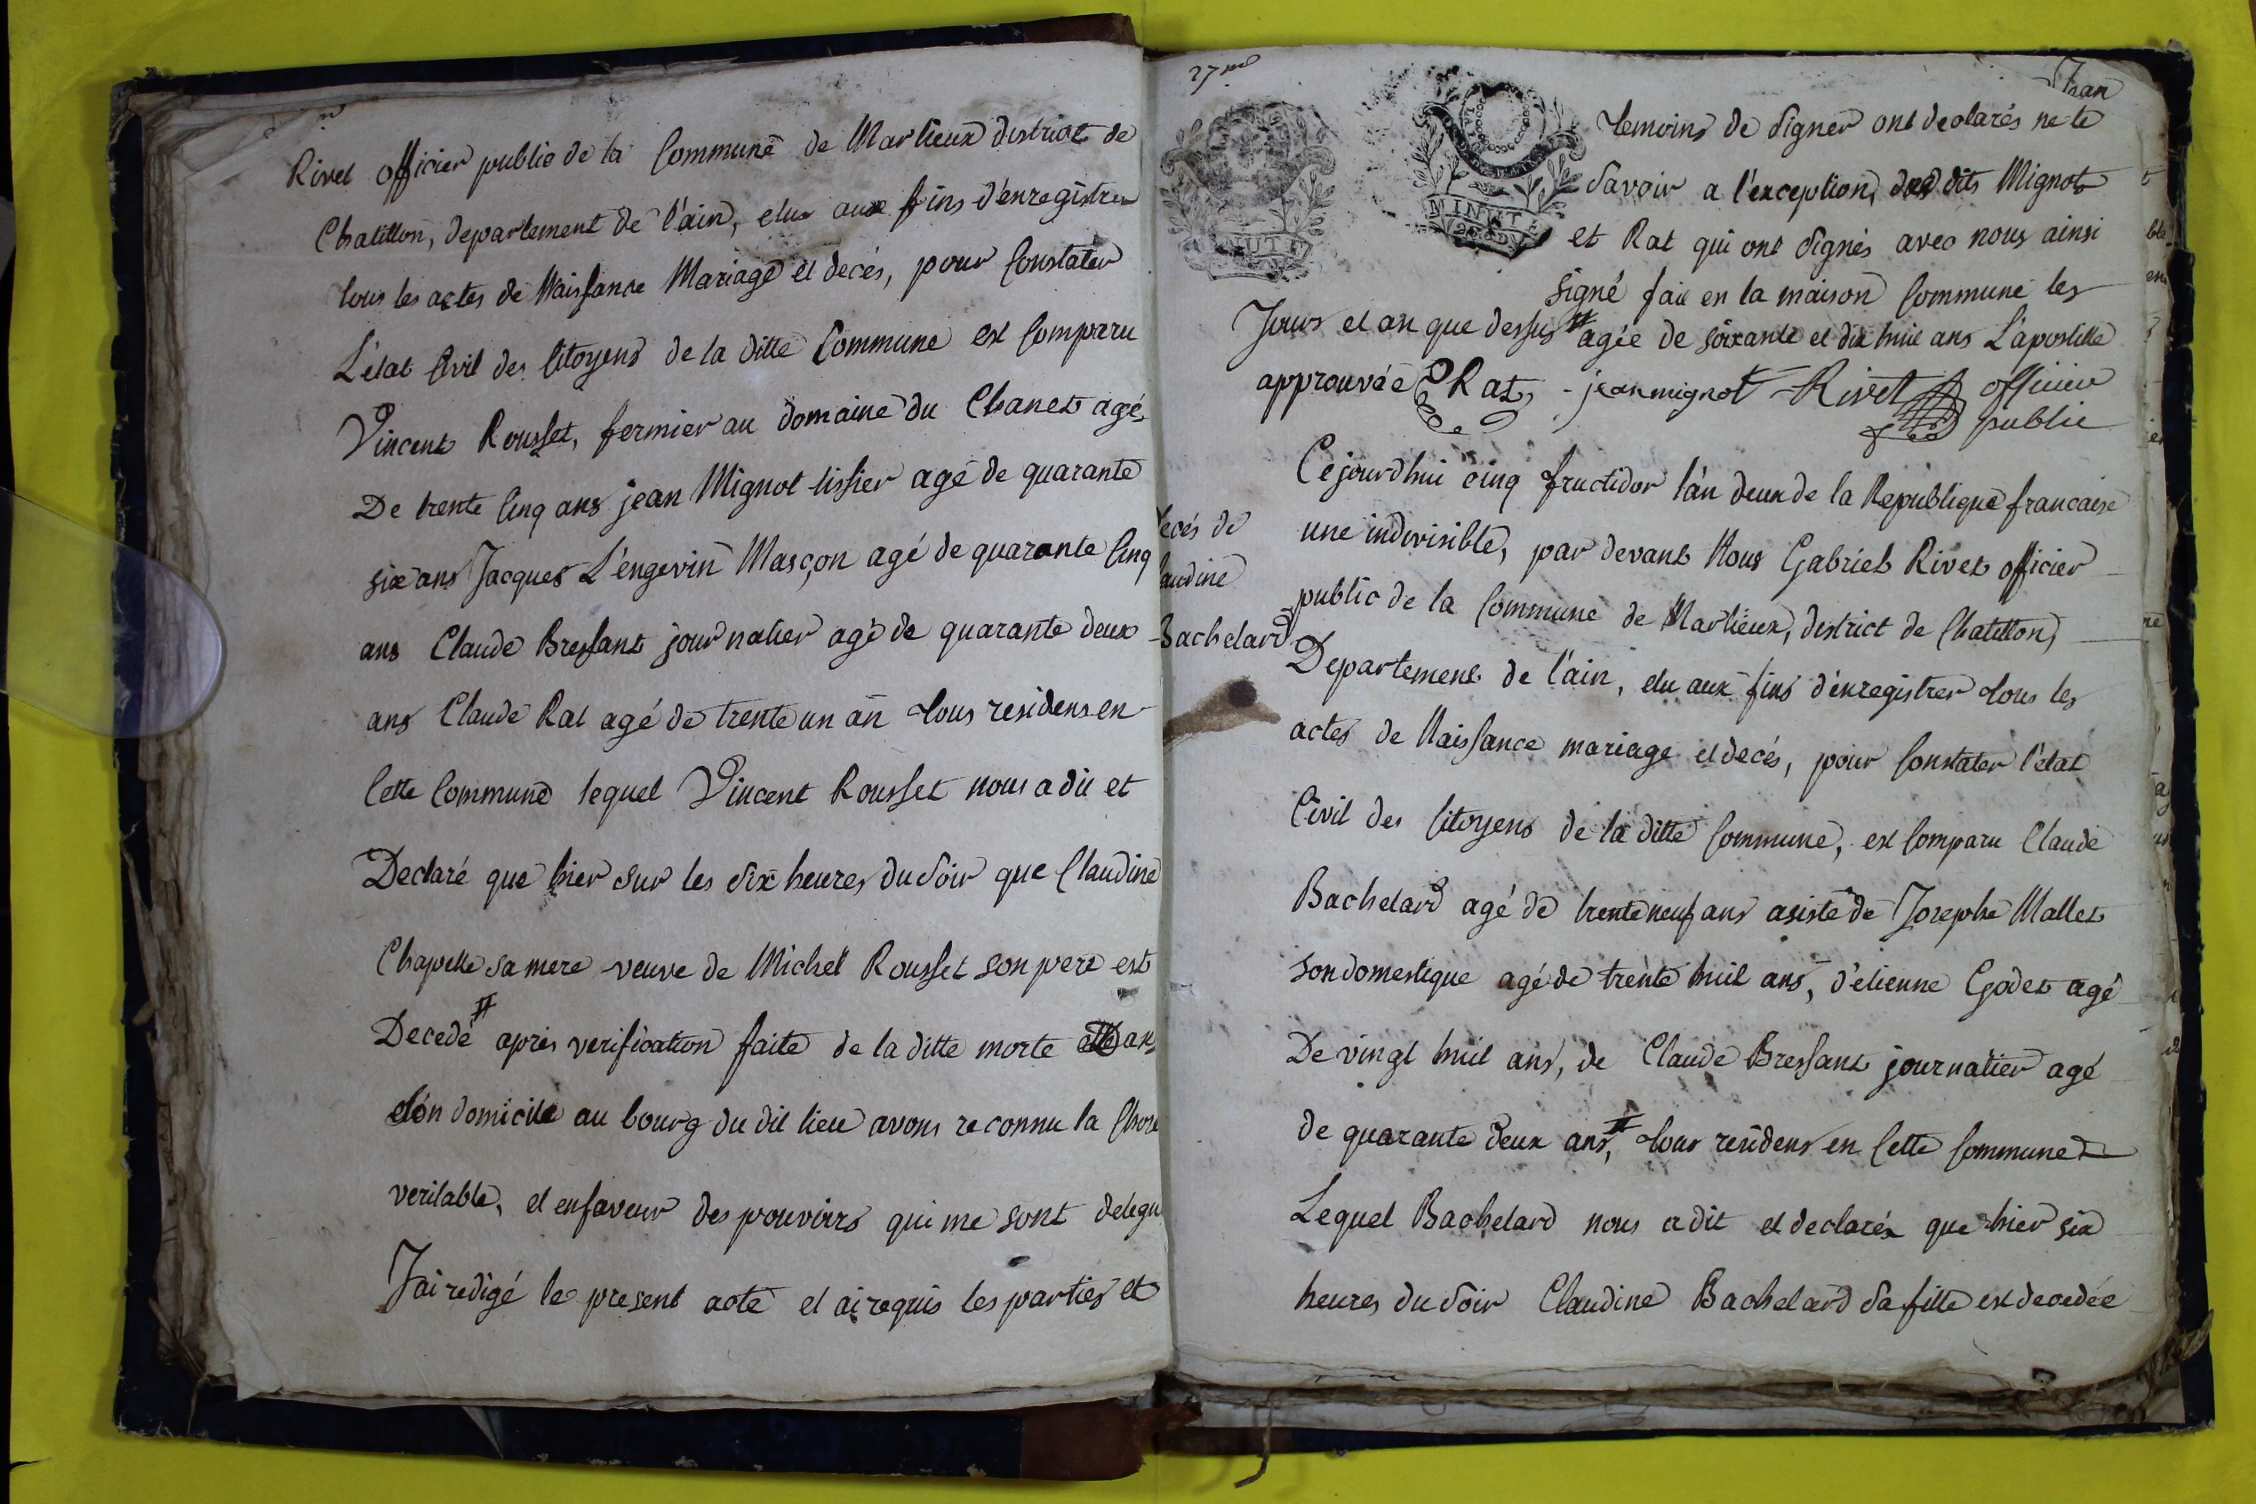 Rivet officier public de la Commune de Marlieux district de
Chatillon, departement de l'ain, elu aux fins d'enregistrer
tous les actes de Naissance Mariage et decés, pour Constater
L'état Civil des Citoyens de la ditte Commune est Comparu
Vincent Rousset, fermier au domaine du Chanet agé
De trente Cinq ans jean Mignot tissier agé de quarante
six ans Jacques L'engevin Masçon agé de quarante Cinq
ans Claude Bressant journalier agé de quarante deux
ans Claude Rat agé de trente un an tous residens en
Cette Commune lequel Vincent Rousset nous a dit et
Declaré que hier sur les six heures du soir que Claudine
Chapelle sa mere veuve de Michel Rousset son pere est
Decedé # apris verification faite de la ditte morte dans
son domicile au bourg du dit lieu avons reconnu la Chose
veritable, et en faveur des pouvoirs qui me sont delegu
J'ai redigé le present acte et ai requis les parties et
27me
Jean
MINUTE
temoins de signer ont declarés ne le
savoir a l'exception des dits Mignot
et Rat qui ont signés avec nous ainsi
signé fait en la maison Commune les
Jours et an que dessus # agée de soixante et dix huit ans L'apostille
approuvée Rat jean mignot Rivet officier
public
ecés de
laudine
Bachelard
Cejourdhui cinq fructidor l'an deux de la Republique francaise
une indivisible, par devant Nous Gabriel Rivet officier
public de la Commune de Marlieux, district de Chatillon,
Departement de l'ain, elu aux fins d'enregistrer tous les
actes de Naissance mariage et decés, pour Constater l'état
Civil des Citoyens de la ditte Commune, est Comparu Claude
Bachelard agé de trente neuf ans asisté de Josephe Mallet
son domestique agé de trente huit ans, d'etienne Godet agé
De vingt huit ans, de Claude Bressant journalier agé
de quarante deux ans, # tous residens en Cette Commune
Lequel Bachelard nous a dit et declaréx que hier six
heures du soir Claudine Bachelard sa fille est decedée